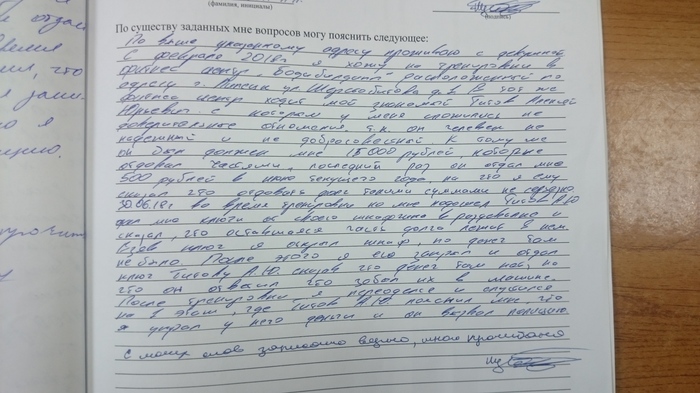 (фамилия, инициалы)
(подпись)
По существу заданных мне вопросов могу пояснить следующее:
По выше указанному адресу проживаю с девушкой
С февраля 2018г я хожу на тренировки в
фитнес центр "Бодибилдинг" расположенный по
адресу г. Липецк ул. д. В тот же
фитнес центр ходит мой знакомый Титов Алексей
Юрьевич с которым у меня сложились не
доверительные отношения, т.к. он человек не
надежный и не добросовестный к тому же
он был должен мне 15000 рублей которые
отдавал частями, последний раз он отдал мне
500 рублей в июне текущего года на что я ему
сказал что отдавать долг такими суммами не
30.06.18г во время тренировки ко мне подошел Титов А.Ю
дал мне ключи от своего шкафчика в раздевалке и
сказал, что оставшаяся часть долга лежит в нем.
Взяв ключ я открыл шкаф, но денег там
не было. После этого я его закрыл и отдал
ключ Титову А.Ю. сказав что денег там нет, на
что он ответил что забыл их в машине.
После тренировки я переоделся и спустился
на 1 этаж, где Титов А.Ю. пояснил мне, что
я украл у него деньги и он вызвал полицию.
С моих слов записано верно, мною прочитано